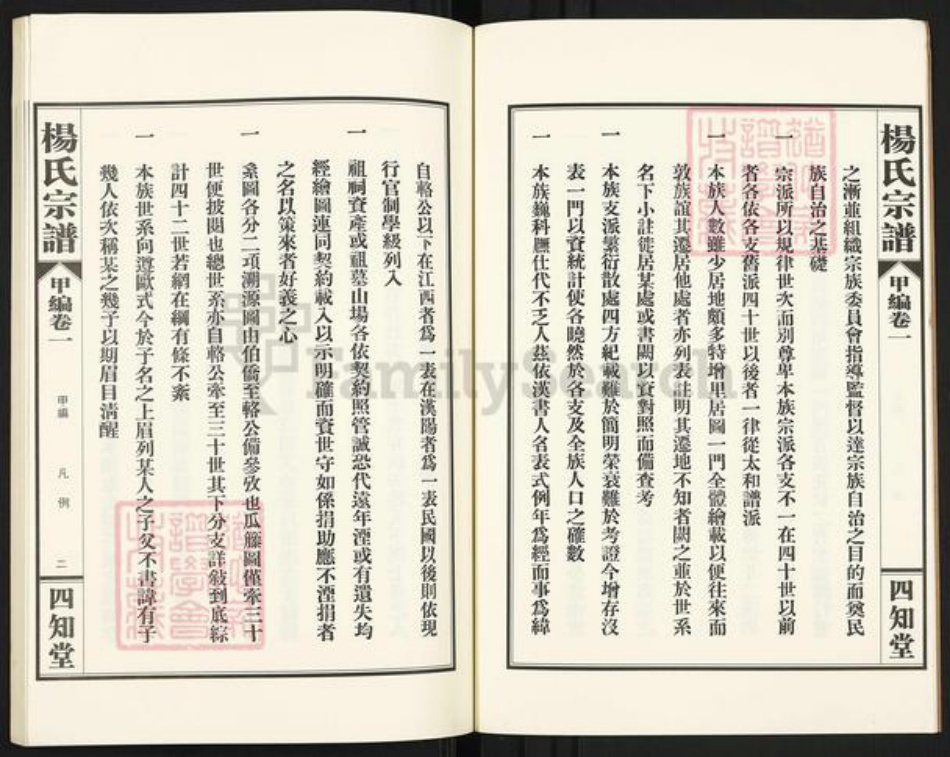 楊氏宗譜
甲編卷一
四知堂
之漸並組織宗族委員會指導監督以達宗族自治之目的而奠民
族自治之基礎
一 宗派所以規律世次而別尊卑本族宗派各支不一在四十世以前
者各依各支舊派四十世以後者一律從太和譜派
一 本族人數雖少居地頗多特增里居圖一門全體繪載以便往來而
敦族誼其遷居他處者亦列表註明其遷地不知者闕之並於世系
名下小註徙居某處或書闕以資對照而備查考
一 本族支派繁衍散處四方紀載難於簡明榮衰難於考證今增存沒
表一門以資統計使各曉然於各支及全族人口之確數
一 本族巍科膴仕代不乏人茲依漢書人名表式例年為經而事為緯
自輅公以下在江西者為一表在漢陽者為一表民國以後則依現
行官制學級列入
一 祖祠資產或祖墓山場各依契約照管誠恐代遠年湮或有遺失均
經繪圖連同契約載入以示明確而資世守如係捐助應不湮捐者
之名以策來者好義之心
一 系圖各分二項溯源圖由伯僑至輅公備參攷也瓜籐圖僅牽三十
世便披閱也總世系亦自輅公牽至三十世其下分支詳敍到底綜
計四十二世若網在綱有條不紊
一 本族世系向遵歐式今於子名之上眉列某人之子父不書諱有子
幾人依次稱某之幾子以期眉目清醒
楊氏宗譜
甲編卷一
甲編 凡例 二
四知堂
FamilySearch